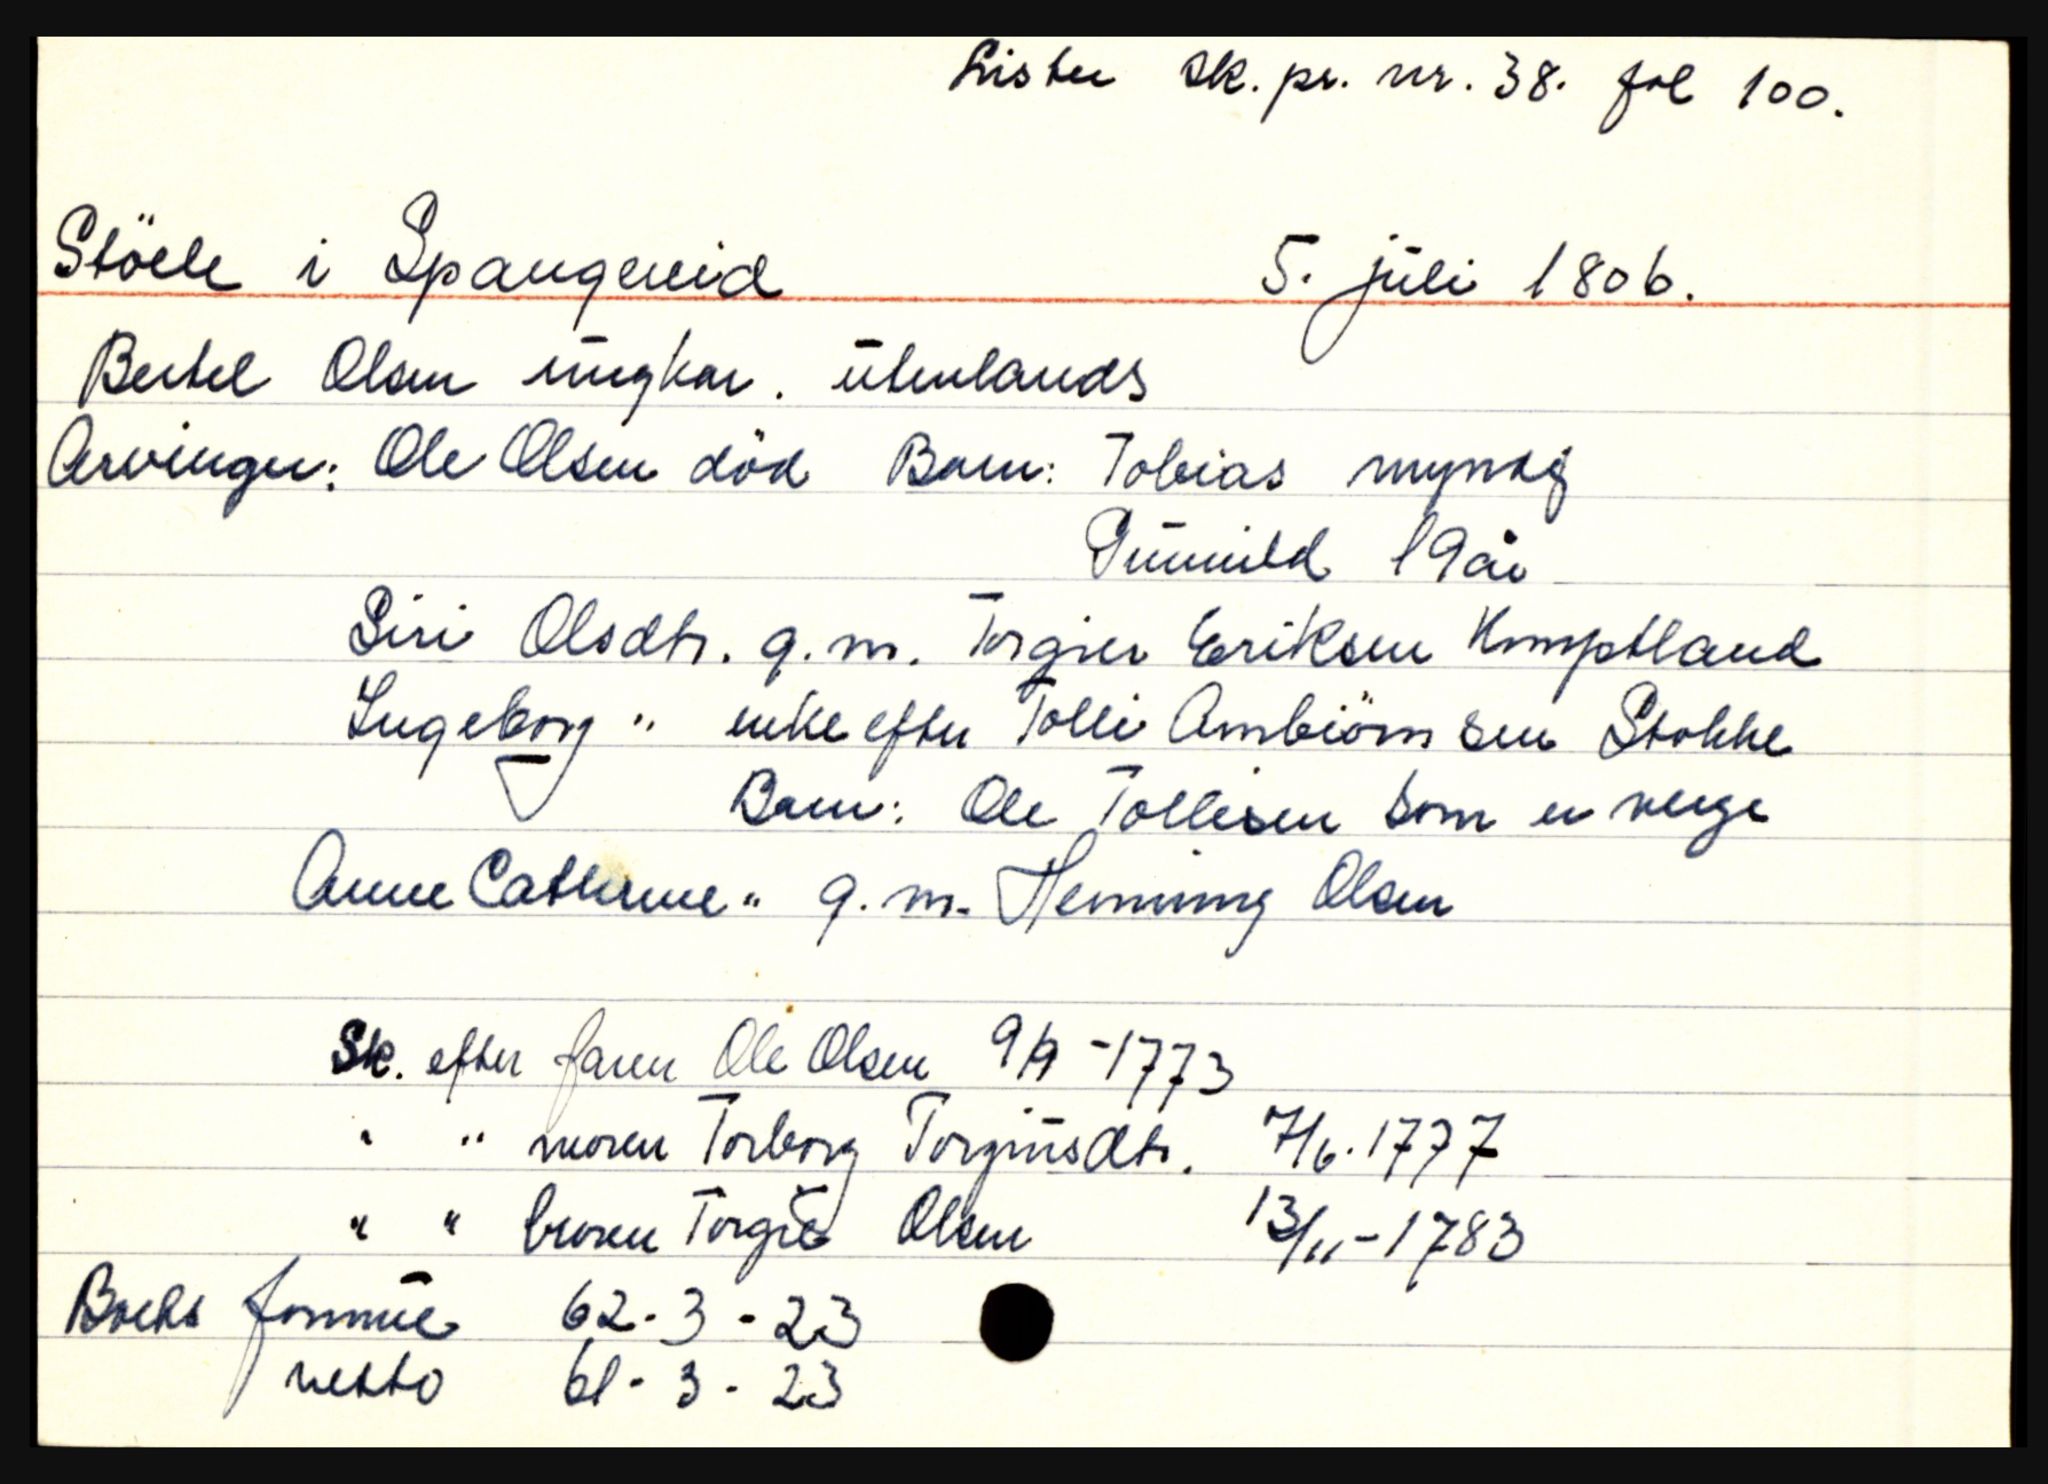 Lister sk. pr. nr. 38. fol 100.
Störle i Spangereid 5. juli 1806.
Bertel Olsen ungkar. utenlands
Arvinger: Ole Olsen död Barn: Tobias myndig
Gunnild 19 år
Siri Olsdtr. g. m. Torgier Eriksen Kumptland
Ingeborg " enke efter Tolli Ambiörnsen Stokke
Barn: Ole Tollisen som er verge
Anne Cathrine " g. m. Henning Olsen
Sk. efter faren Ole Olsen 9/9 -1773
" " moren Torborg Torgiusdtr. 7/6. 1777
" " broren Torgie Olsen 13/11-1783
Boets formue 62-3-23
netto 61-3-23